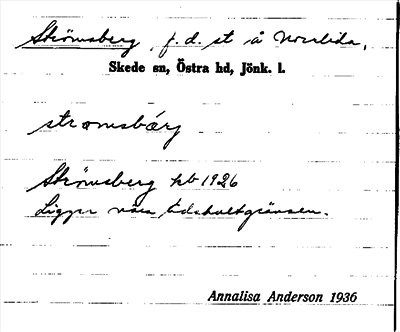 Strömsberg, f.d. st å Norrlida,
Skede sn, Östra hd, Jönk. l.
strömsbärg
Strömsberg kb 1926
Ligger nära Edshultgränsen.
Annalisa Anderson 1936